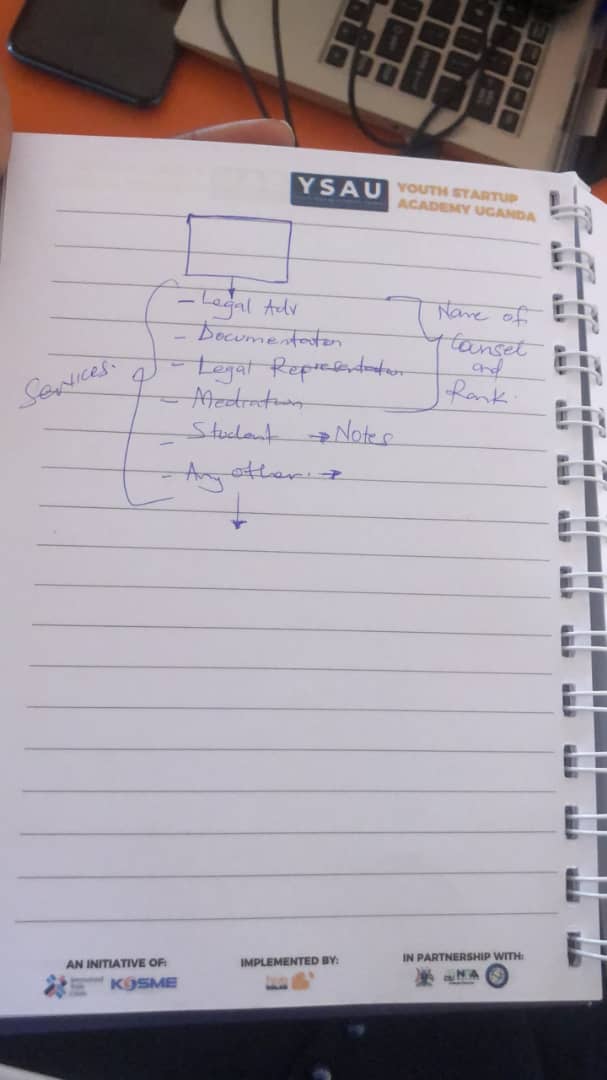 YSAU
YOUTH STARTUP
ACADEMY UGANDA
- Legal Adv
- Documentation
- Legal Representation
- Mediation
- Student → Notes
- Any other. →
Services.
Name of
Counsel
and
Rank.
AN INITIATIVE OF:
KOSME
IMPLEMENTED BY:
IN PARTNERSHIP WITH: